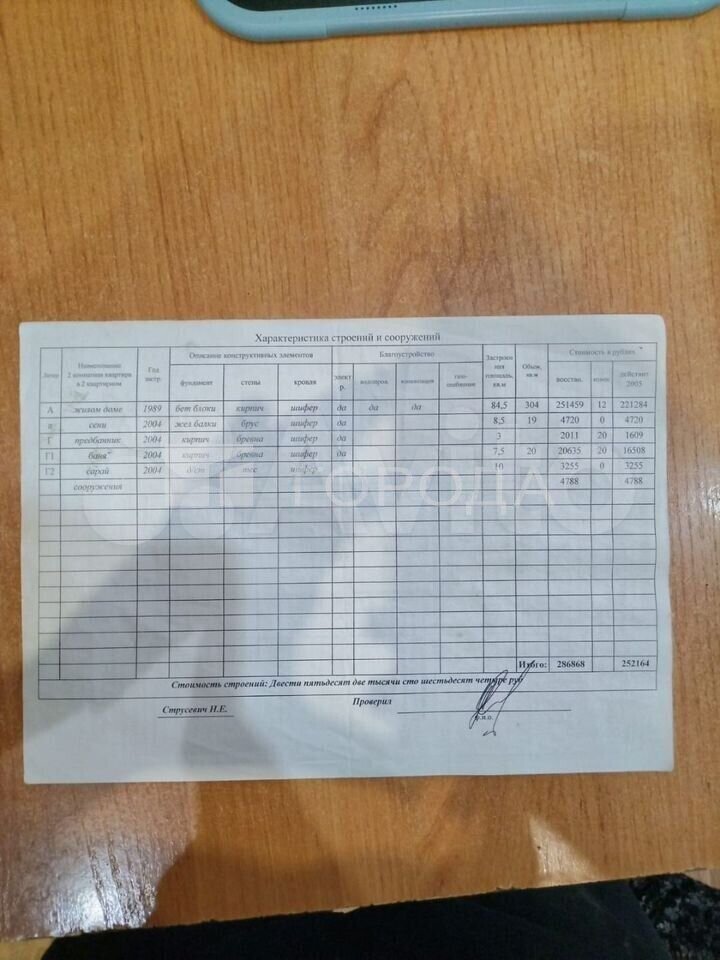 Характеристика строений и сооружений
Литер Наименование 2 комнатная квартира в 2 квартирном Год застр. Описание конструктивных элементов Благоустройство Застроенная площадь, кв.м Объем, кв.м Стоимость в рублях
фундамент стены кровля электр. водопров. канализация газоснабжение восстан. износ действит 2005
А жилом доме 1989 бет блоки кирпич шифер да да да 84,5 304 251459 12 221284
а сени 2004 жел балки брус шифер да 8,5 19 4720 0 4720
Г предбанник 2004 кирпич бревна шифер да 3 2011 20 1609
Г1 баня 2004 кирпич бревна шифер да 7,5 20 20635 20 16508
Г2 сарай 2004 д/ст тес шифер 10 3255 0 3255
сооружения 4788 4788
ГОРОДА
Итого: 286868 252164
Стоимость строений: Двести пятьдесят две тысячи сто шестьдесят четыре руб
Струсевич Н.Е. Проверил
Ф.И.О.